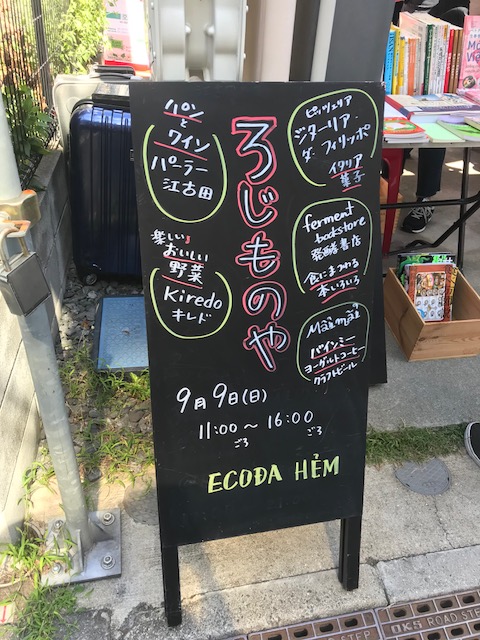 ろじものや
パン
と
ワイン
パーラー
江古田
楽しい♩
おいしい
野菜
Kiredo
キレド
ピッツェリア
ジターリア・
ダ・フィリッポ
イタリア
菓子
ferment
bookstore
発酵書店
食にまつわる
本いろいろ
Maimai
バインミー
ヨーグルトコーヒー
クラフトビール
9月9日(日)
11:00～16:00
ごろ ごろ
ECOĐA HẺM
OKS ROAD STE